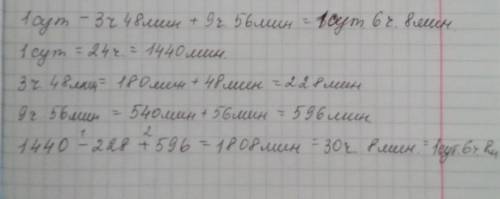 1сут - 3ч 48мин + 9ч 56мин = 1сут 6ч. 8мин
1сут = 24ч. = 1440мин.
3ч 48мин = 180мин + 48мин = 228мин
9ч 56мин = 540мин + 56мин = 596мин
1 2
1440 - 228 + 596 = 1808мин = 30ч. 8мин. = 1сут. 6ч 8м